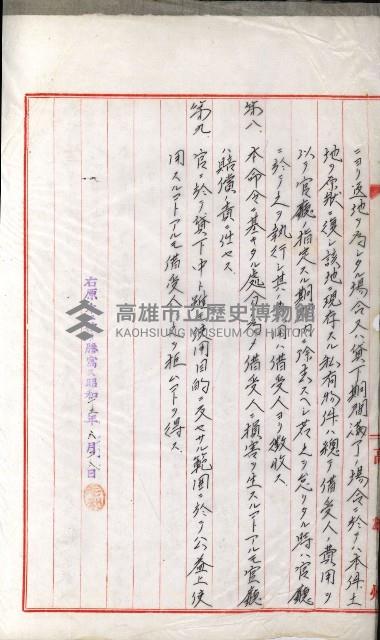 ニヨリ返地ヲ為シタル場合又ハ貸下期間満了ノ場合ニ於テハ本件土
地ヲ原状ニ復シ該地ニ現存スル私有物件ハ総テ借受人ノ費用ヲ
以テ官廳ノ指定スル期間内ニ除去スベシ若シ之ヲ怠リタル時ハ官廳
ニ於テ之ヲ執行シ其ノ費用ハ借受人ヨリ徴収ス
第八、本命令ニ基キタル処分ノ為メ借受人ニ損害ヲ生スルコトアルモ官廳
ハ賠償ノ責ニ任セス
第九、官ニ於テ貸下中ト雖モ使用目的ニ反セサル範囲ニ於テ公益上使
用スルコトアルモ借受人ハ之ヲ拒ムコトヲ得ス
右原本ニ依リ謄寫ス昭和 年 月 日
高雄市立歷史博物館
KAOHSIUNG MUSEUM OF HISTORY
高雄州